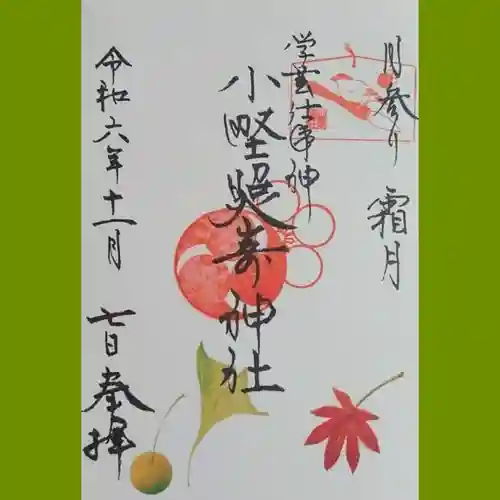 月参り 霜月
学芸仕事神
小野照崎神社
令和六年十一月
七日奉拝